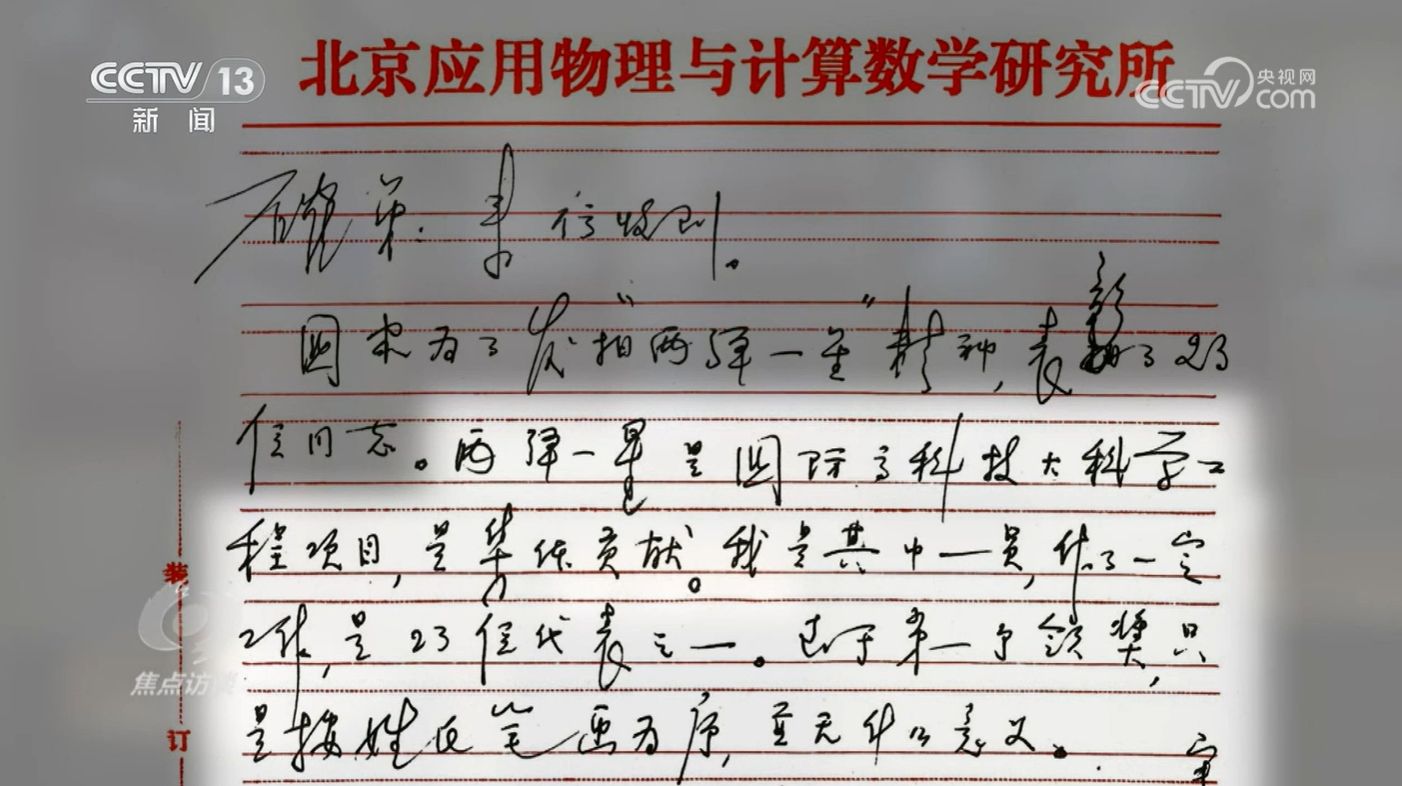 CCTV 13
新闻
央视网
CCTV com
北京应用物理与计算数学研究所
弟:来信收到。
国家为了发扬“两弹一星”精神,表彰了23
位同志。两弹一星是国际高科技大科学工
程项目,是集体贡献。我是其中一员,作了一定
工作,是23位代表之一。至于第一个领奖,只
是按姓氏笔画为序,并无什么意义。
装
订
焦点访谈